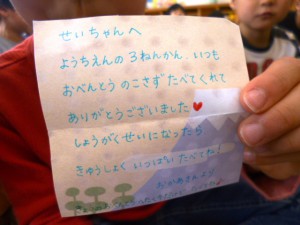 せいちゃんへ
ようちえんの3ねんかん、いつも
おべんとう のこさず たべてくれて
ありがとうございました♥
しょうがくせいになったら
きゅうしょく いっぱい たべてね!
おかあさんより